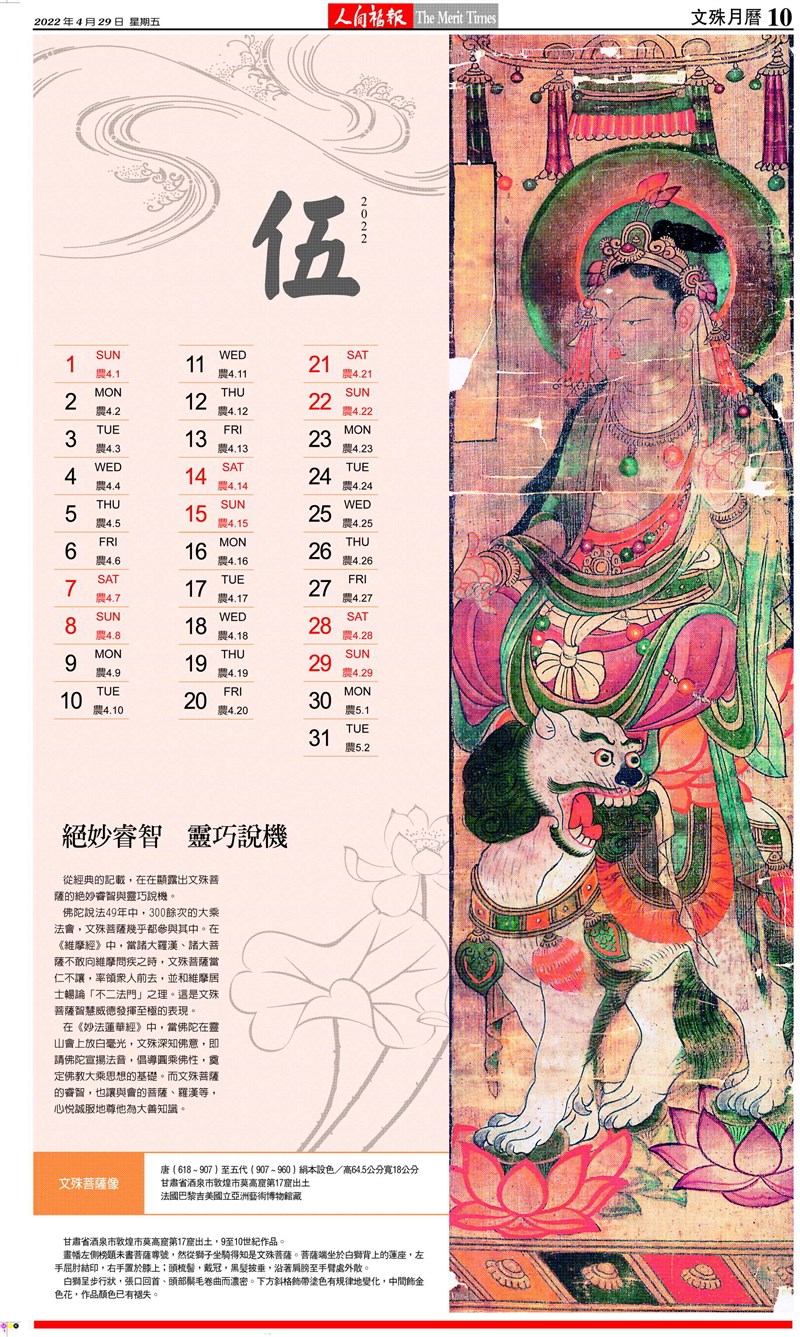 2022 年 4 月 29 日 星期五
人间福報 The Merit Times
文殊月曆 10
伍
2022
1 SUN 農4.1
2 MON 農4.2
3 TUE 農4.3
4 WED 農4.4
5 THU 農4.5
6 FRI 農4.6
7 SAT 農4.7
8 SUN 農4.8
9 MON 農4.9
10 TUE 農4.10
11 WED 農4.11
12 THU 農4.12
13 FRI 農4.13
14 SAT 農4.14
15 SUN 農4.15
16 MON 農4.16
17 TUE 農4.17
18 WED 農4.18
19 THU 農4.19
20 FRI 農4.20
21 SAT 農4.21
22 SUN 農4.22
23 MON 農4.23
24 TUE 農4.24
25 WED 農4.25
26 THU 農4.26
27 FRI 農4.27
28 SAT 農4.28
29 SUN 農4.29
30 MON 農5.1
31 TUE 農5.2
絕妙睿智 靈巧說機
從經典的記載，在在顯露出文殊菩
薩的絕妙睿智與靈巧說機。
佛陀說法49年中，300餘次的大乘
法會，文殊菩薩幾乎都參與其中。在
《維摩經》中，當諸大羅漢、諸大菩
薩不敢向維摩問疾之時，文殊菩薩當
仁不讓，率領眾人前去，並和維摩居
士暢論「不二法門」之理。這是文殊
菩薩智慧威德發揮至極的表現。
在《妙法蓮華經》中，當佛陀在靈
山會上放白毫光，文殊深知佛意，即
請佛陀宣揚法音，倡導圓乘佛性，奠
定佛教大乘思想的基礎。而文殊菩薩
的睿智，也讓與會的菩薩、羅漢等，
心悅誠服地尊他為大善知識。
文殊菩薩像
唐（618～907）至五代（907～960）絹本設色／高64.5公分寬18公分
甘肅省酒泉市敦煌市莫高窟第17窟出土
法國巴黎吉美國立亞洲藝術博物館藏
甘肅省酒泉市敦煌市莫高窟第17窟出土，9至10世紀作品。
畫幡左側榜題未書菩薩尊號，然從獅子坐騎得知是文殊菩薩。菩薩端坐於白獅背上的蓮座，左
手屈肘結印，右手置於膝上；頭梳髻，戴冠，黑髮披垂，沿著肩膀至手臂處外散。
白獅呈步行狀，張口回首、頭部鬃毛卷曲而濃密。下方斜格飾帶塗色有規律地變化，中間飾金
色花，作品顏色已有褪失。